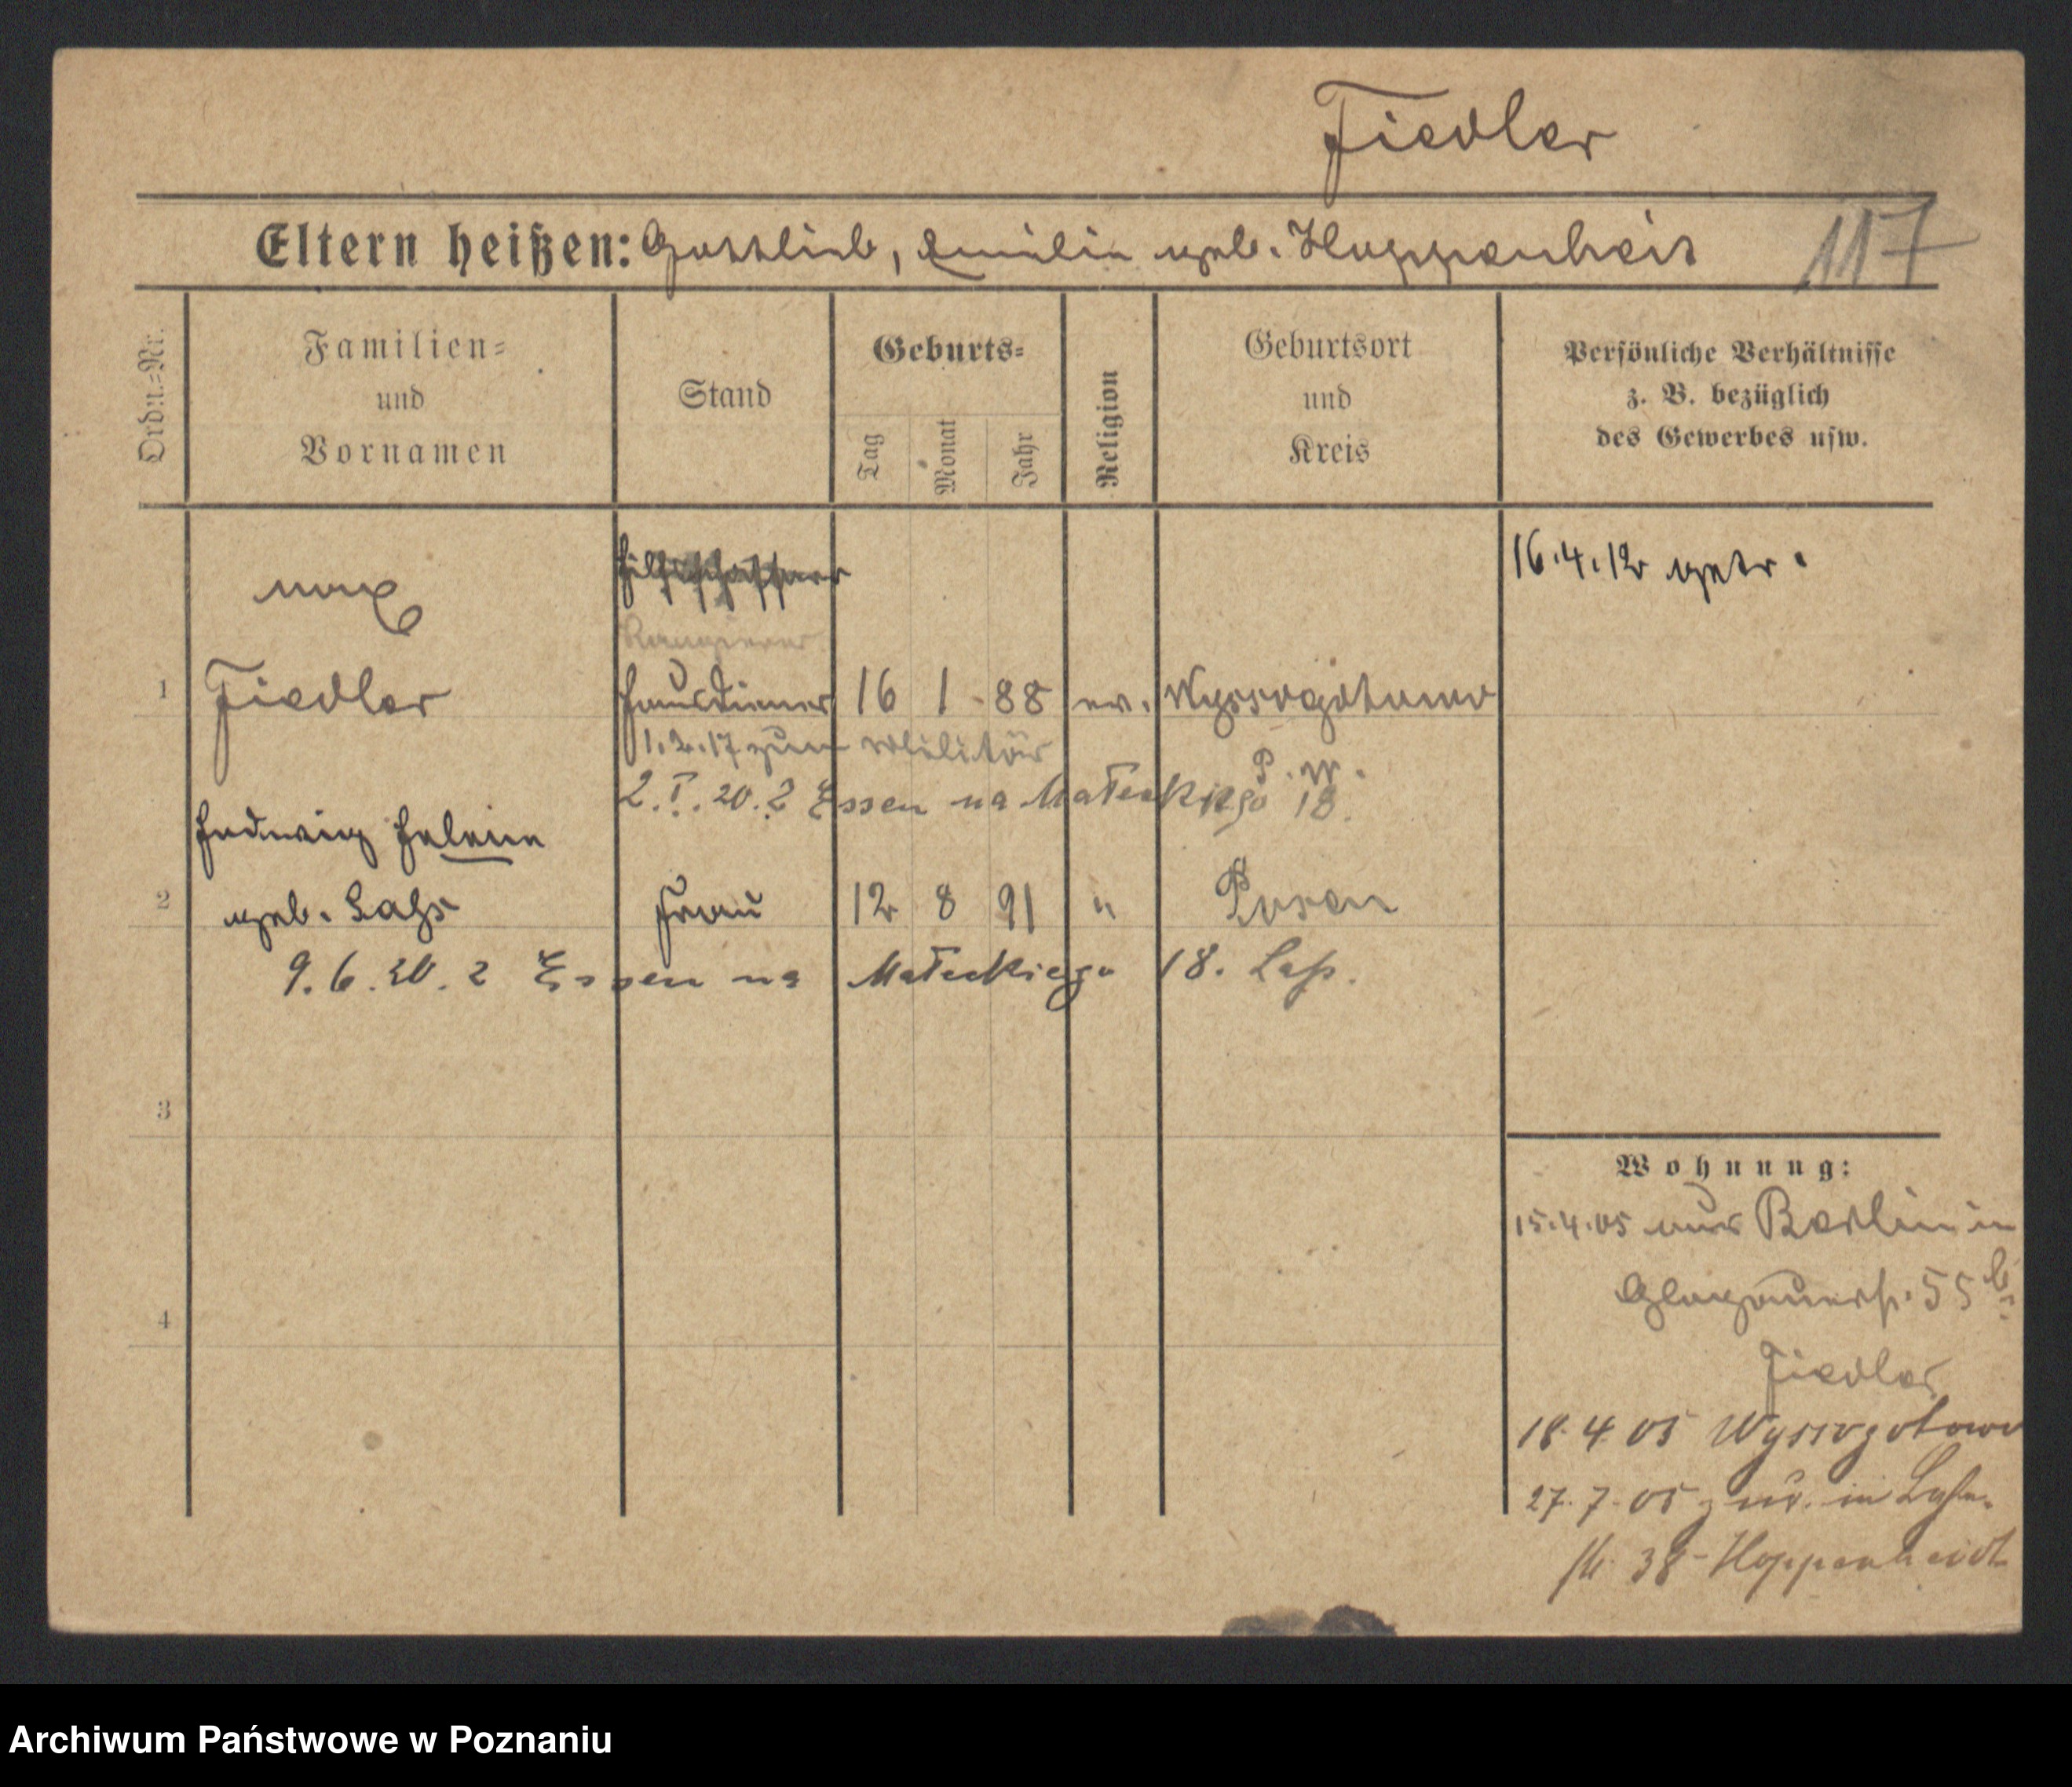 Fiedler
Eltern heißen: Gottlieb, Emilie geb. Hoppenheit
117
Ordn.=Nr.
Familien=
und
Vornamen
Stand
Geburts=
Tag
Monat
Jahr
Religion
Geburtsort
und
Kreis
Persönliche Verhältnisse
z. B. bezüglich
des Gewerbes usw.
Max
Rangierer
16.4.12 getr.
1
Fiedler
Hausdiener
16
1
88
ev.
Wyssogotowo
P. W.
1.2.17 zum Militär
2.I.20. z Essen na Mateckiego 18.
Hedwig Helene
2
geb. Lahs
Frau
12
8
91
"
Posen
9.6.20. z Essen na Mateckiego 18.
3
4
Wohnung:
15.4.05 aus Berlin in
Glogauerstr. 55
Fiedler
18.4.05 Wyssogotowo
27.7.05 zur. in
str. 38 Hoppenheidt
Archiwum Państwowe w Poznaniu